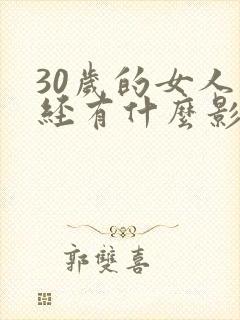 30歲的女人
經有什麼影
郭雙喜